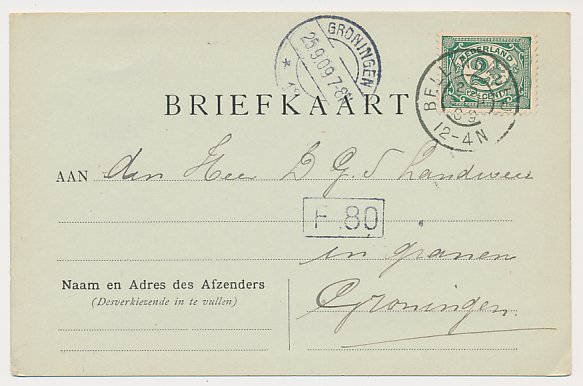 GRONINGEN
25.9.09.7-8V
*
NEDERLAND
2½
CENT
BEL
12-4N
BRIEFKAART
AAN den Heer L G J Landweer
F.80
in granen
Groningen.
Naam en Adres des Afzenders
(Desverkiezende in te vullen)